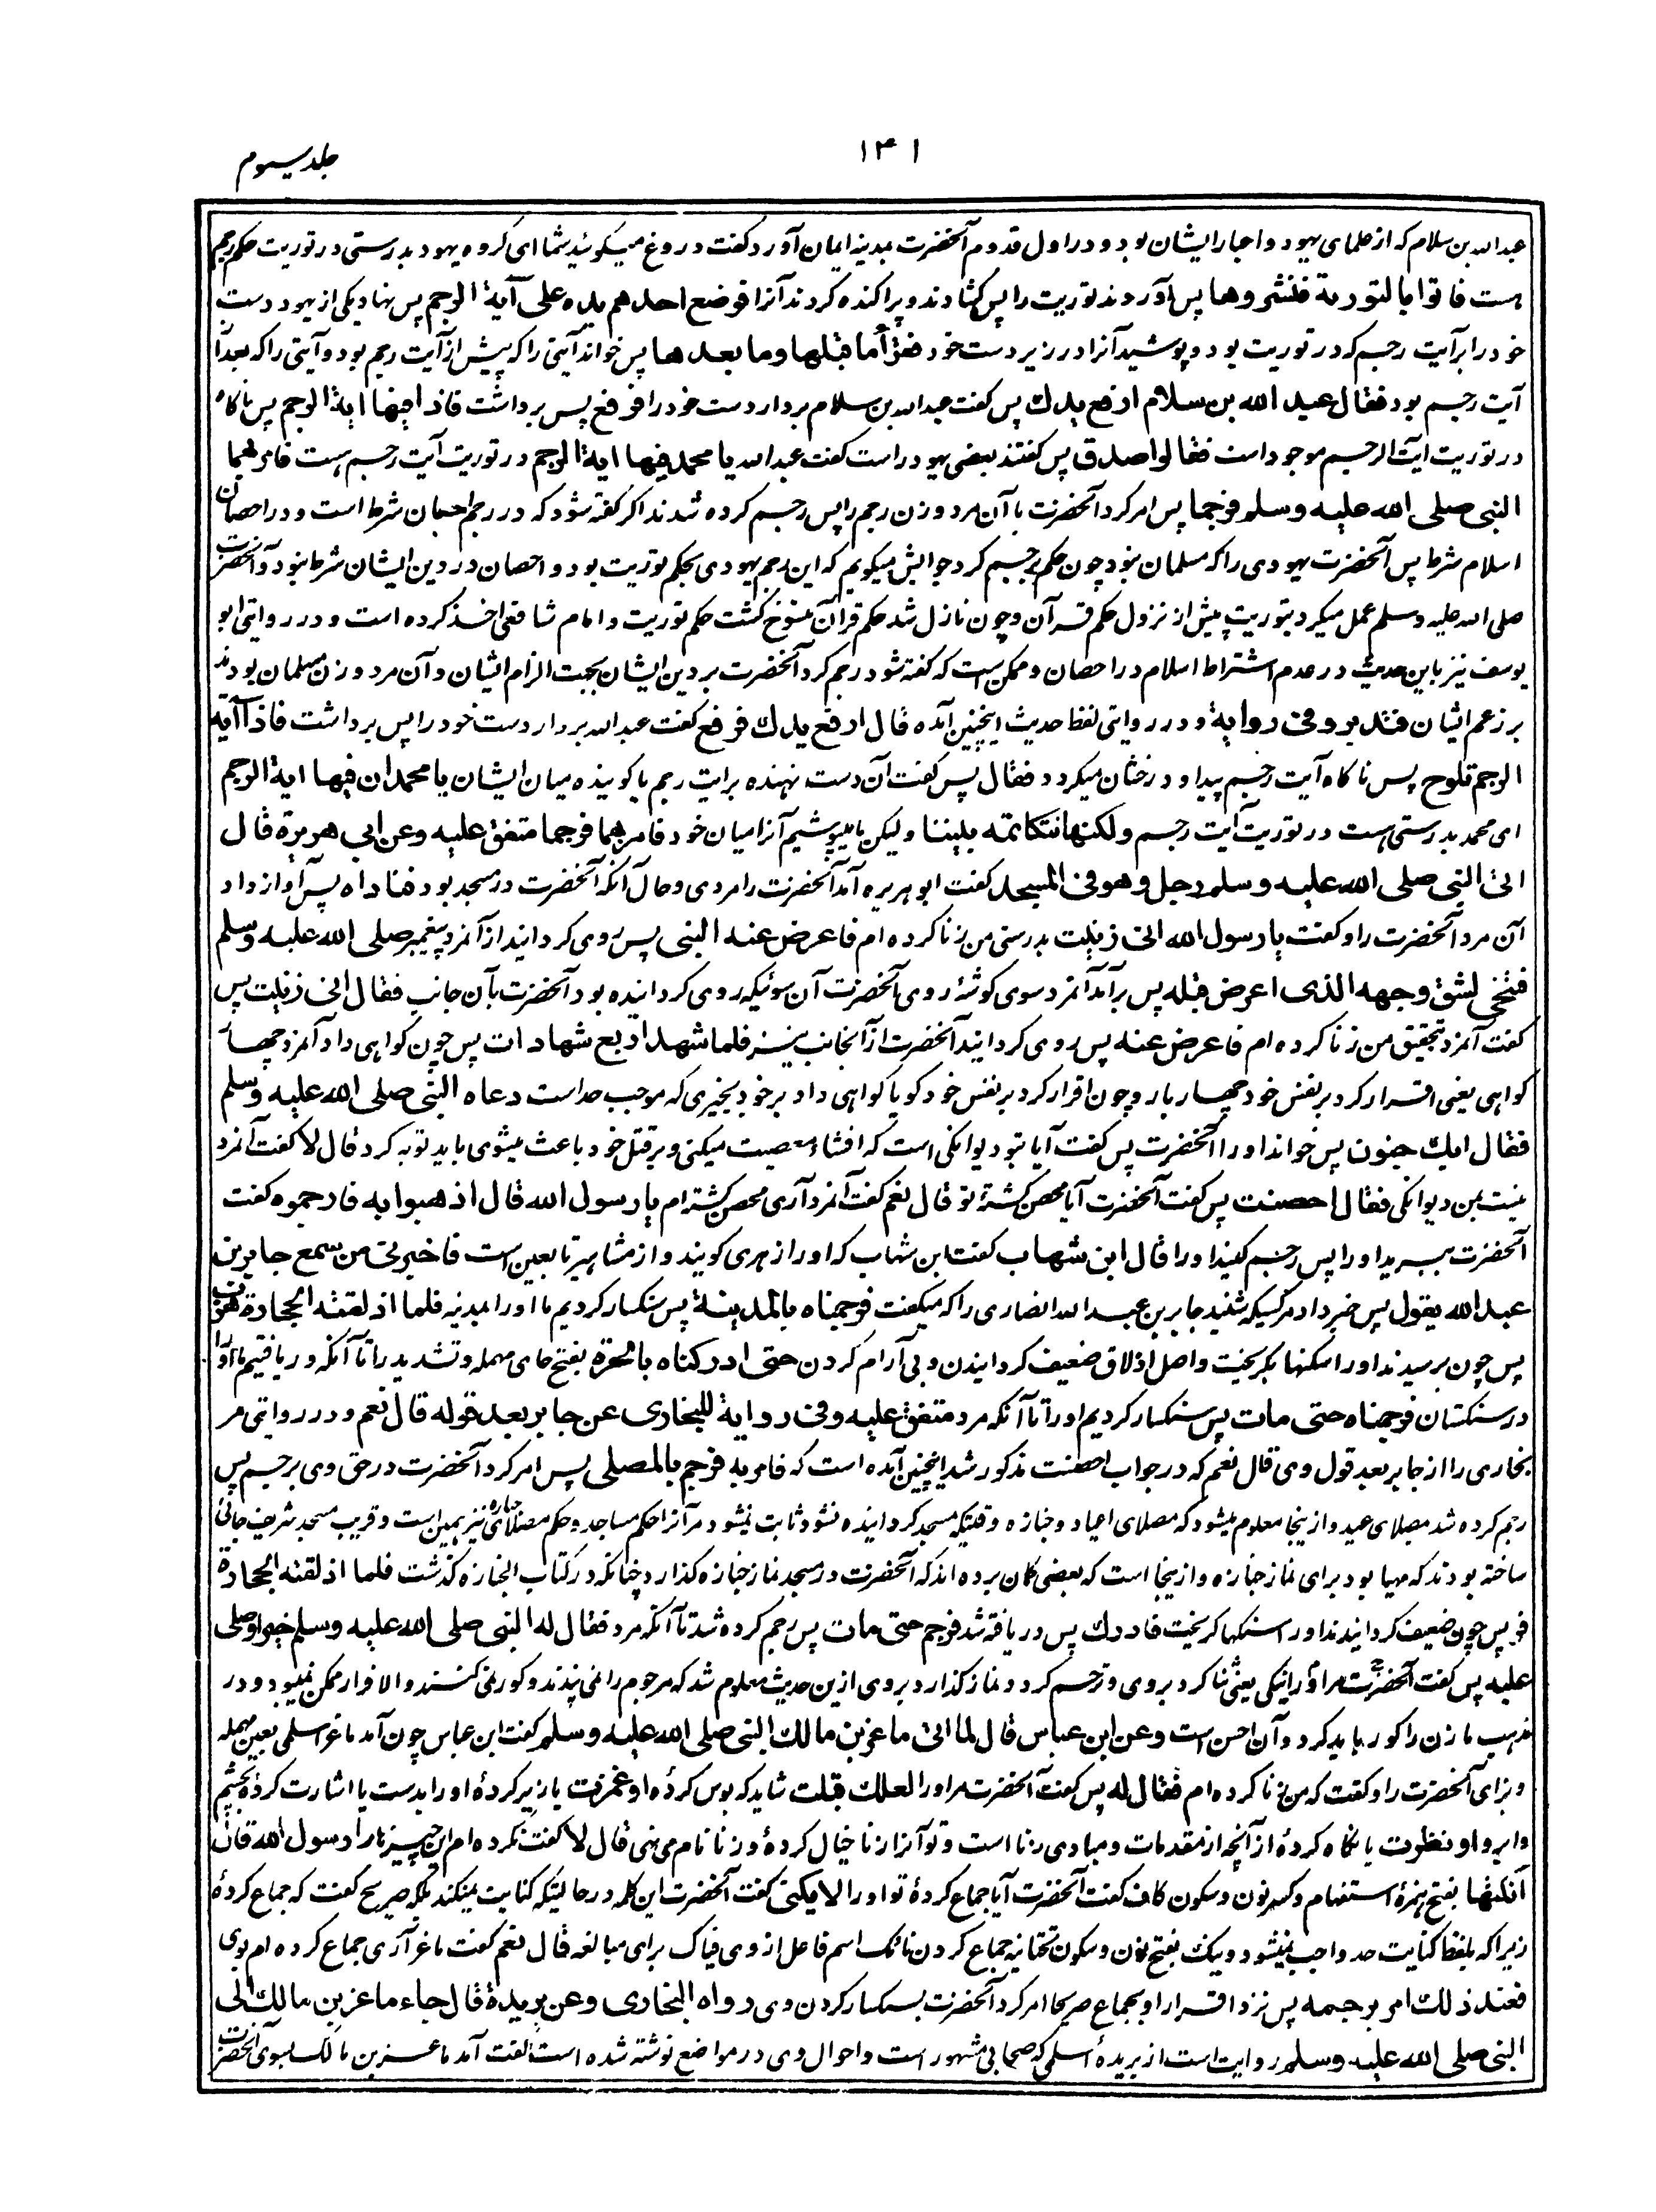 ۱۴۱
جلد سیوم
عبدالله بن سلام که از علمای یهود و احبار ایشان بود و در اول قدوم آنحضرت بمدینه ایمان آورد کفت دروغ میکوئید شما ای کروه یهود بدرستی در توریت حکم رجم
هست فاتوا بالتورىة فنشروها پس آوردند توریت را پس کشادند و پراکنده کردند آنرا فوضع احدهم يده على آية الرجم پس نهاد یکی از یهود دست
خود را بر آیت رجم که در توریت بود و پوشید آنرا در زیر دست خود فقرأ ما قبلها وما بعدها پس خواند آیتی را که پیش از آیت رجم بود و آیتی را که بعد از
آیت رجم بود فقال عبد الله بن سلام ارفع يدك پس کفت عبدالله بن سلام بردار دست خود را فرفع پس برداشت فاذا فيها اية الرجم پس ناکاه
در توریت آیت الرجم موجود است فقالوا صدق پس کفتند بعضی یهود راست کفت عبدالله يا محمد فيها اية الرجم در توریت آیت رجم هست فامر بهما
النبى صلى الله عليه وسلم فرجما پس امر کرد آنحضرت بآن مرد و زن رجم را پس رجم کرده شدند اکر کفته شود که در رجم احصان شرط است و در احصان
اسلام شرط پس آنحضرت یهودی را که مسلمان نبود چون حکم برجم کرد جوابش میکویم که این رجم یهودی بحکم توریت بود و احصان در دین ایشان شرط نبود و آنحضرت
صلی الله علیه وسلم عمل میکرد بتوریت پیش از نزول حکم قرآن و چون نازل شد حکم قرآن منسوخ کشت حکم توریت و امام شافعی اخذ کرده است و در روایتی ابو
یوسف نیز باین حدیث در عدم اشتراط اسلام در احصان و ممکن است که کفته شود رجم کرد آنحضرت بر دین ایشان بجهت الزام ایشان و آن مرد و زن مسلمان بودند
بر زعم ایشان فتدبر وفى رواية و در روایتی لفظ حدیث اینچنین آمده قال ارفع يدك فرفع کفت عبدالله بردار دست خود را پس برداشت فاذا آية
الرجم تلوح پس ناکاه آیت رجم پیدا و درخشان میکردد فقال پس کفت آن دست نهنده بر آیت رجم یا کوینده میان ایشان يا محمد ان فيها اية الرجم
ای محمد بدرستی هست در توریت آیت رجم ولكنها نتكاتمه بيننا ولیکن ما میپوشیم آنرا میان خود فامر بهما فرجما متفق عليه وعن ابى هريرة قال
اتى النبى صلى الله عليه وسلم رجل وهو فى المسجد کفت ابوهریره آمد آنحضرت را مردی و حال آنکه آنحضرت در مسجد بود فناداه پس آواز داد
آن مرد آنحضرت را و کفت يا رسول الله انى زنيت بدرستی من زنا کرده ام فاعرض عنه النبى پس روی کردانید از آنمرد پیغمبر صلى الله عليه وسلم
فتنحى لشق وجهه الذى اعرض قبله پس برآمد آنمرد سوی کوشهٔ روی آنحضرت آن سوئیکه روی کردانیده بود آنحضرت بآن جانب فقال انى زنيت پس
کفت آنمرد بتحقیق من زنا کرده ام فاعرض عنه پس روی کردانید آنحضرت از آنجانب نیز فلما شهد اربع شهادات پس چون کواهی داد آنمرد چهار
کواهی یعنی اقرار کرد بر نفس خود چهار بار و چون اقرار کرد بر نفس خود کویا کواهی داد بر خود بچیزی که موجب حد است دعاه النبى صلى الله عليه وسلم
فقال ابك جنون پس خواند او را آنحضرت پس کفت آیا بتو دیوانکی است که افشاء معصیت میکنی و بر قتل خود باعث میشوی باید توبه کرد قال لا کفت آنمرد
نیست بمن دیوانکی فقال احصنت پس کفت آنحضرت آیا محصن کشتهٔ تو قال نعم کفت آنمرد آری محصن کشته ام يا رسول الله قال اذهبوا به فارجموه کفت
آنحضرت ببرید او را پس رجم کنید او را قال ابن شهاب کفت ابن شهاب که او را زهری کویند و از مشاهیر تابعین است فاخبرنى من سمع جابر بن
عبد الله يقول پس خبر داد مرا کسیکه شنید جابر بن عبدالله انصاری را که میکفت فرجمناه بالمدينة پس سنکسار کردیم ما او را بمدینه فلما اذلقته الحجارة هرب
پس چون برسیدند او را سنکها بکریخت و اصل اذلاق ضعیف کردانیدن و بی آرام کردن حتى ادركناه بالحرة بفتح حای مهمله و تشدید را تا آنکه دریافتیم ما او را
در سنکستان فرجمناه حتى مات پس سنکسار کردیم او را تا آنکه مرد متفق عليه وفى رواية للبخارى عن جابر بعد قوله قال نعم و در روایتی مر
بخاری را از جابر بعد قول وی قال نعم که در جواب احصنت مذکور شد اینچنین آمده است که فامر به فرجم بالمصلى پس امر کرد آنحضرت در حق وی برجم پس
رجم کرده شد بمصلای عید و از ینجا معلوم میشود که مصلای اعیاد و جنازه وقتیکه مسجد کردانیده نشود ثابت نمیشود مر آنرا حکم مساجد و حکم مصلای جنازه نیز همین است و قریب مسجد شریف جائی
ساخته بودند که مهیا بود برای نماز جنازه و از ینجا است که بعضی کمان برده اند که آنحضرت در مسجد نماز جنازه کذارد چنانکه در کتاب الجنازه کذشت فلما اذلقته الحجارة
فر پس چون ضعیف کردانیدند او را سنکها کریخت فادرك پس دریافته شد فرجم حتى مات پس رجم کرده شد تا آنکه مرد فقال له النبى صلى الله عليه وسلم خيرا وصلى
عليه پس کفت آنحضرت مر او را نیکی یعنی ثنا کرد بروی و ترحم کرد و نماز کذارد بروی ازین حدیث معلوم شد که مرجوم را نمی بندند و کور نمی کنند و الا فرار ممکن نمیبود و در
مذهب ما زن را کور باید کرد و آن احسن است وعن ابن عباس قال لما اتى ماعز بن مالك النبى صلى الله عليه وسلم کفت ابن عباس چون آمد ماعز اسلمی بعین مهمله
و زای آنحضرت را و کفت که من زنا کرده ام فقال له پس کفت آنحضرت مر او را لعلك قبلت شاید که بوس کردهٔ او غمزت یا زیر کردهٔ او را بدست یا اشارت کردهٔ بچشم
و ابرو او نظرت یا نکاه کردهٔ از آنچه از مقدمات و مبادی زنا است و تو آنرا زنا خیال کردهٔ و زنا نام می نهی قال لا کفت نکرده ام این چیزها را يا رسول الله قال
أنكتها بفتح همزهٔ استفهام و کسر نون و سکون کاف کفت آنحضرت آیا جماع کردهٔ تو او را لا يكنى کفت آنحضرت این کلمه در حالیکه کنایت نمیکند بلکه صریح کفت که جماع کردهٔ
زیرا که بلفظ کنایت حد واجب نمیشود و نیک بفتح نون و سکون تحتانیه جماع کردن نائک اسم فاعل از وی نیاک برای مبالغه قال نعم کفت ماعز آری جماع کرده ام بوی
فعند ذلك امر برجمه پس نزد اقرار او بجماع صریحا امر کرد آنحضرت بسنکسار کردن وی رواه البخارى وعن بريدة قال جاء ماعز بن مالك الى
النبى صلى الله عليه وسلم روایت است از بریدهٔ اسلمی که صحابی مشهور است و احوال وی در مواضع نوشته شده است کفت آمد ماعز بن مالک بسوی آنحضرت